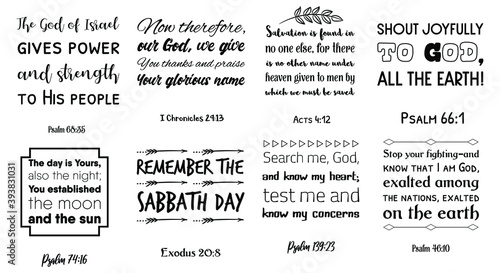 The God of Israel
GIVES POWER
and strength
TO HIS PEOPLE
Psalm 68:35
Now therefore,
our God, we give
You thanks and praise
Your glorious name
1 Chronicles 29:13
Salvation is found in
no one else, for there
is no other name under
heaven given to men by
which we must be saved
Acts 4:12
SHOUT JOYFULLY
TO GOD,
ALL THE EARTH!
PSALM 66:1
The day is Yours,
also the night;
You established
the moon
and the sun
Psalm 74:16
REMEMBER THE
SABBATH DAY
Exodus 20:8
Search me, God,
and know my heart;
test me and
know my concerns
Psalm 139:23
Stop your fighting—and
KNOW THAT I AM GOD,
exalted among
THE NATIONS, EXALTED
on the earth
Psalm 46:10
Adobe Stock | #393831031